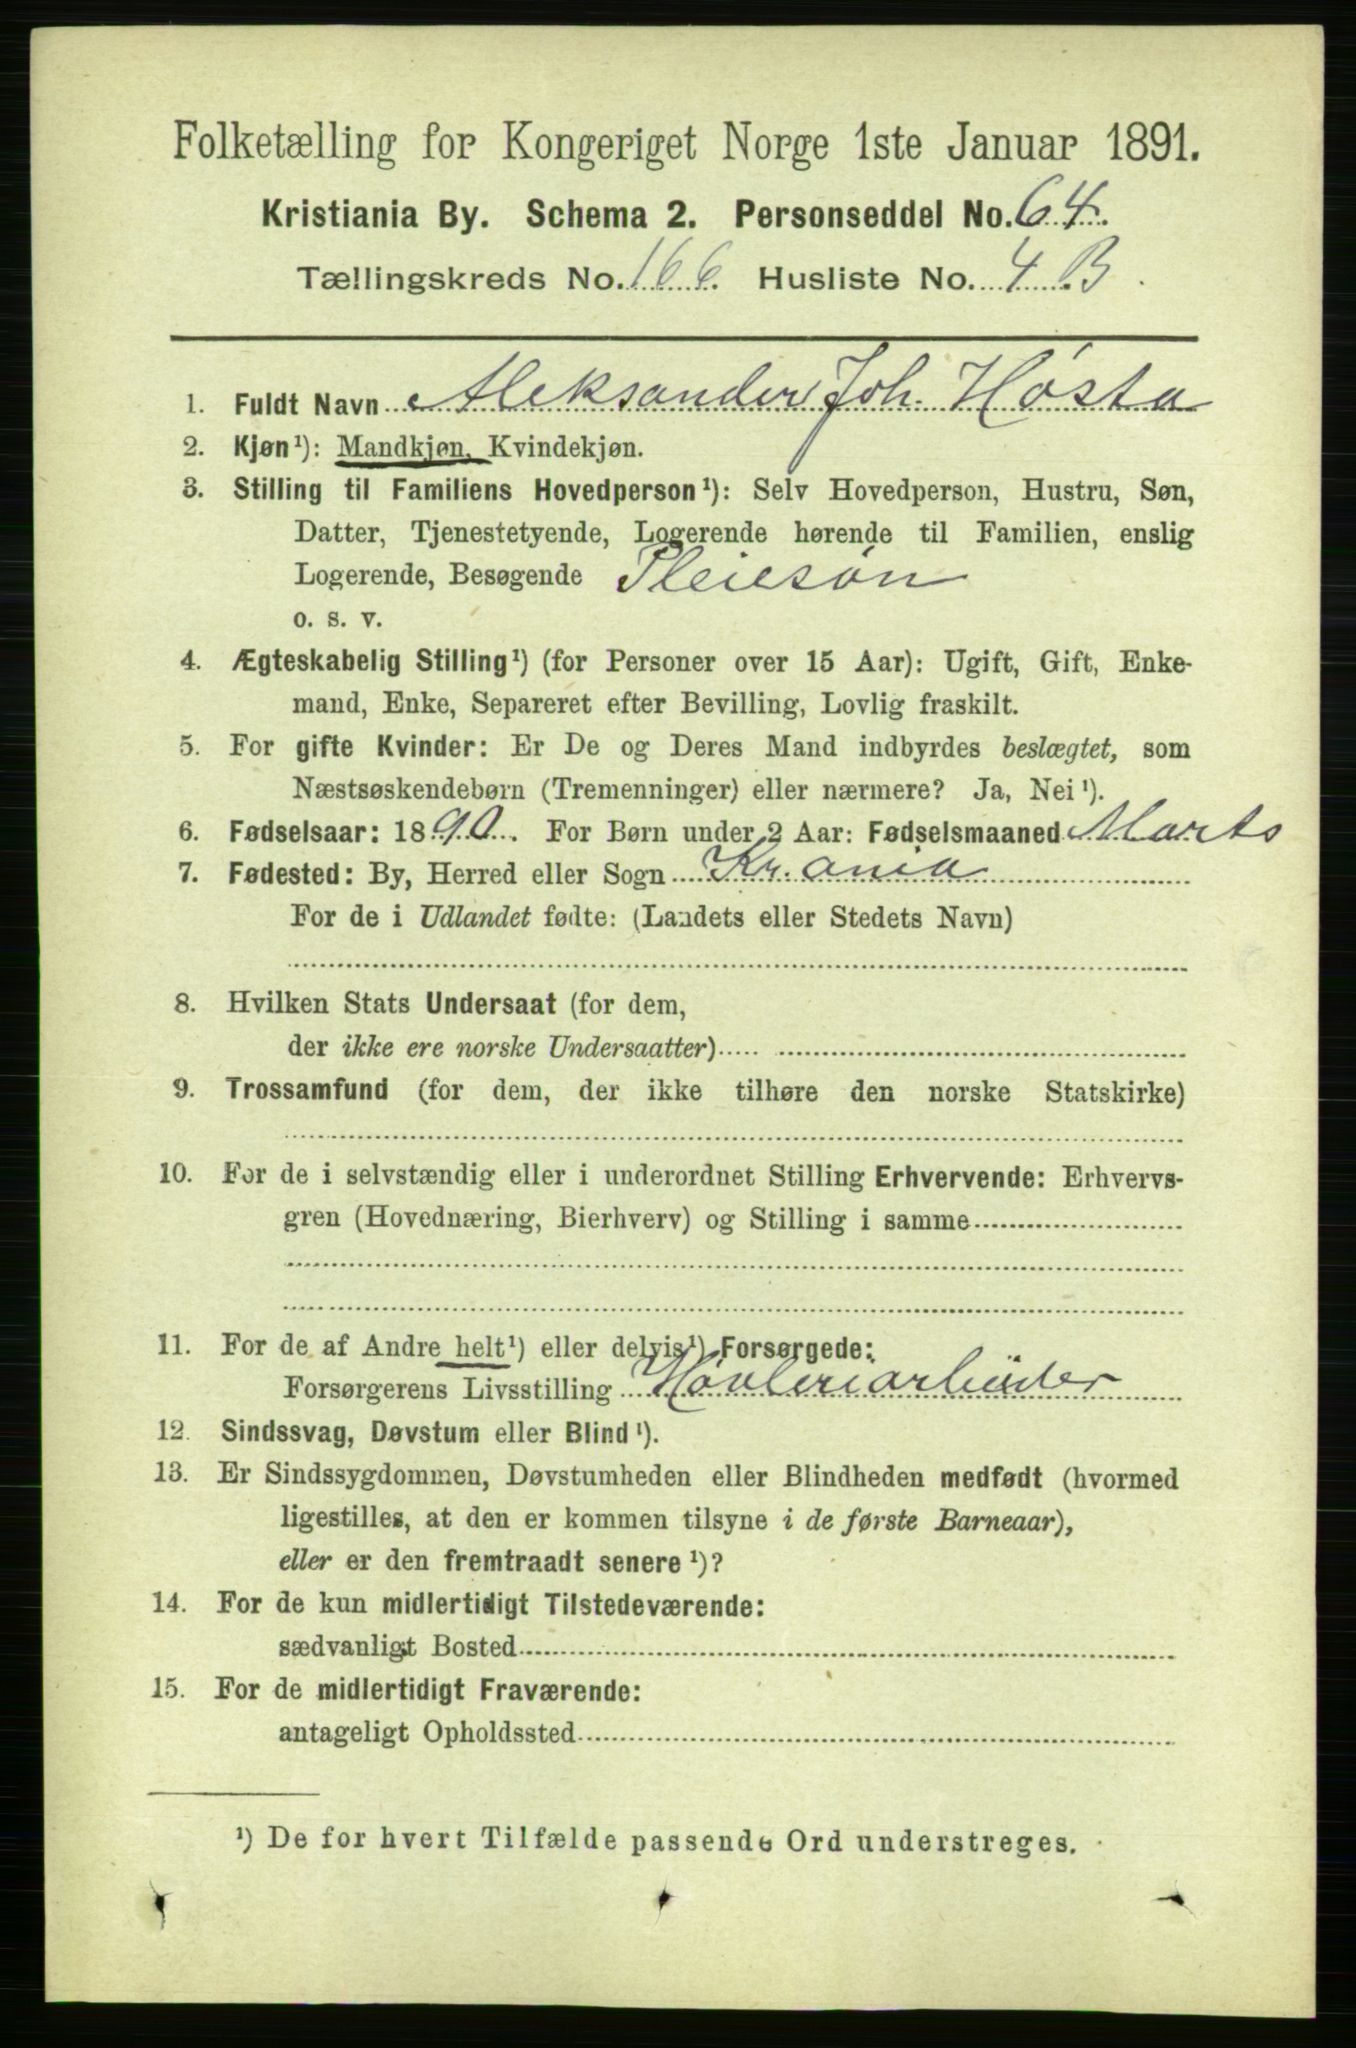 Folketælling for Kongeriget Norge 1ste Januar 1891.
Kristiania By. Schema 2. Personseddel No. 64.
Tællingskreds No. 166. Husliste No. 4 B.
1. Fuldt Navn Aleksander Joh. Høsta
2. Kjøn¹): Mandkjøn, Kvindekjøn.
3. Stilling til Familiens Hovedperson¹): Selv Hovedperson, Hustru, Søn,
Datter, Tjenestetyende, Logerende hørende til Familien, enslig
Logerende, Besøgende Pleiesøn
o. s. v.
4. Ægteskabelig Stilling¹) (for Personer over 15 Aar): Ugift, Gift, Enke-
mand, Enke, Separeret efter Bevilling, Lovlig fraskilt.
5. For gifte Kvinder: Er De og Deres Mand indbyrdes beslægtet, som
Næstsøskendebørn (Tremenninger) eller nærmere? Ja, Nei¹).
6. Fødselsaar: 1890. For Børn under 2 Aar: Fødselsmaaned Marts
7. Fødested: By, Herred eller Sogn Kr.ania
For de i Udlandet fødte: (Landets eller Stedets Navn)
8. Hvilken Stats Undersaat (for dem,
der ikke ere norske Undersaatter)
9. Trossamfund (for dem, der ikke tilhøre den norske Statskirke)
10. For de i selvstændig eller i underordnet Stilling Erhvervende: Erhvervs-
gren (Hovednæring, Bierhverv) og Stilling i samme
11. For de af Andre helt¹) eller delvis¹) Forsørgede:
Forsørgerens Livsstilling Høvleriarbeider
12. Sindssvag, Døvstum eller Blind¹).
13. Er Sindssygdommen, Døvstumheden eller Blindheden medfødt (hvormed
ligestilles, at den er kommen tilsyne i de første Barneaar),
eller er den fremtraadt senere¹)?
14. For de kun midlertidigt Tilstedeværende:
sædvanligt Bosted
15. For de midlertidigt Fraværende:
antageligt Opholdssted
¹) De for hvert Tilfælde passende Ord understreges.